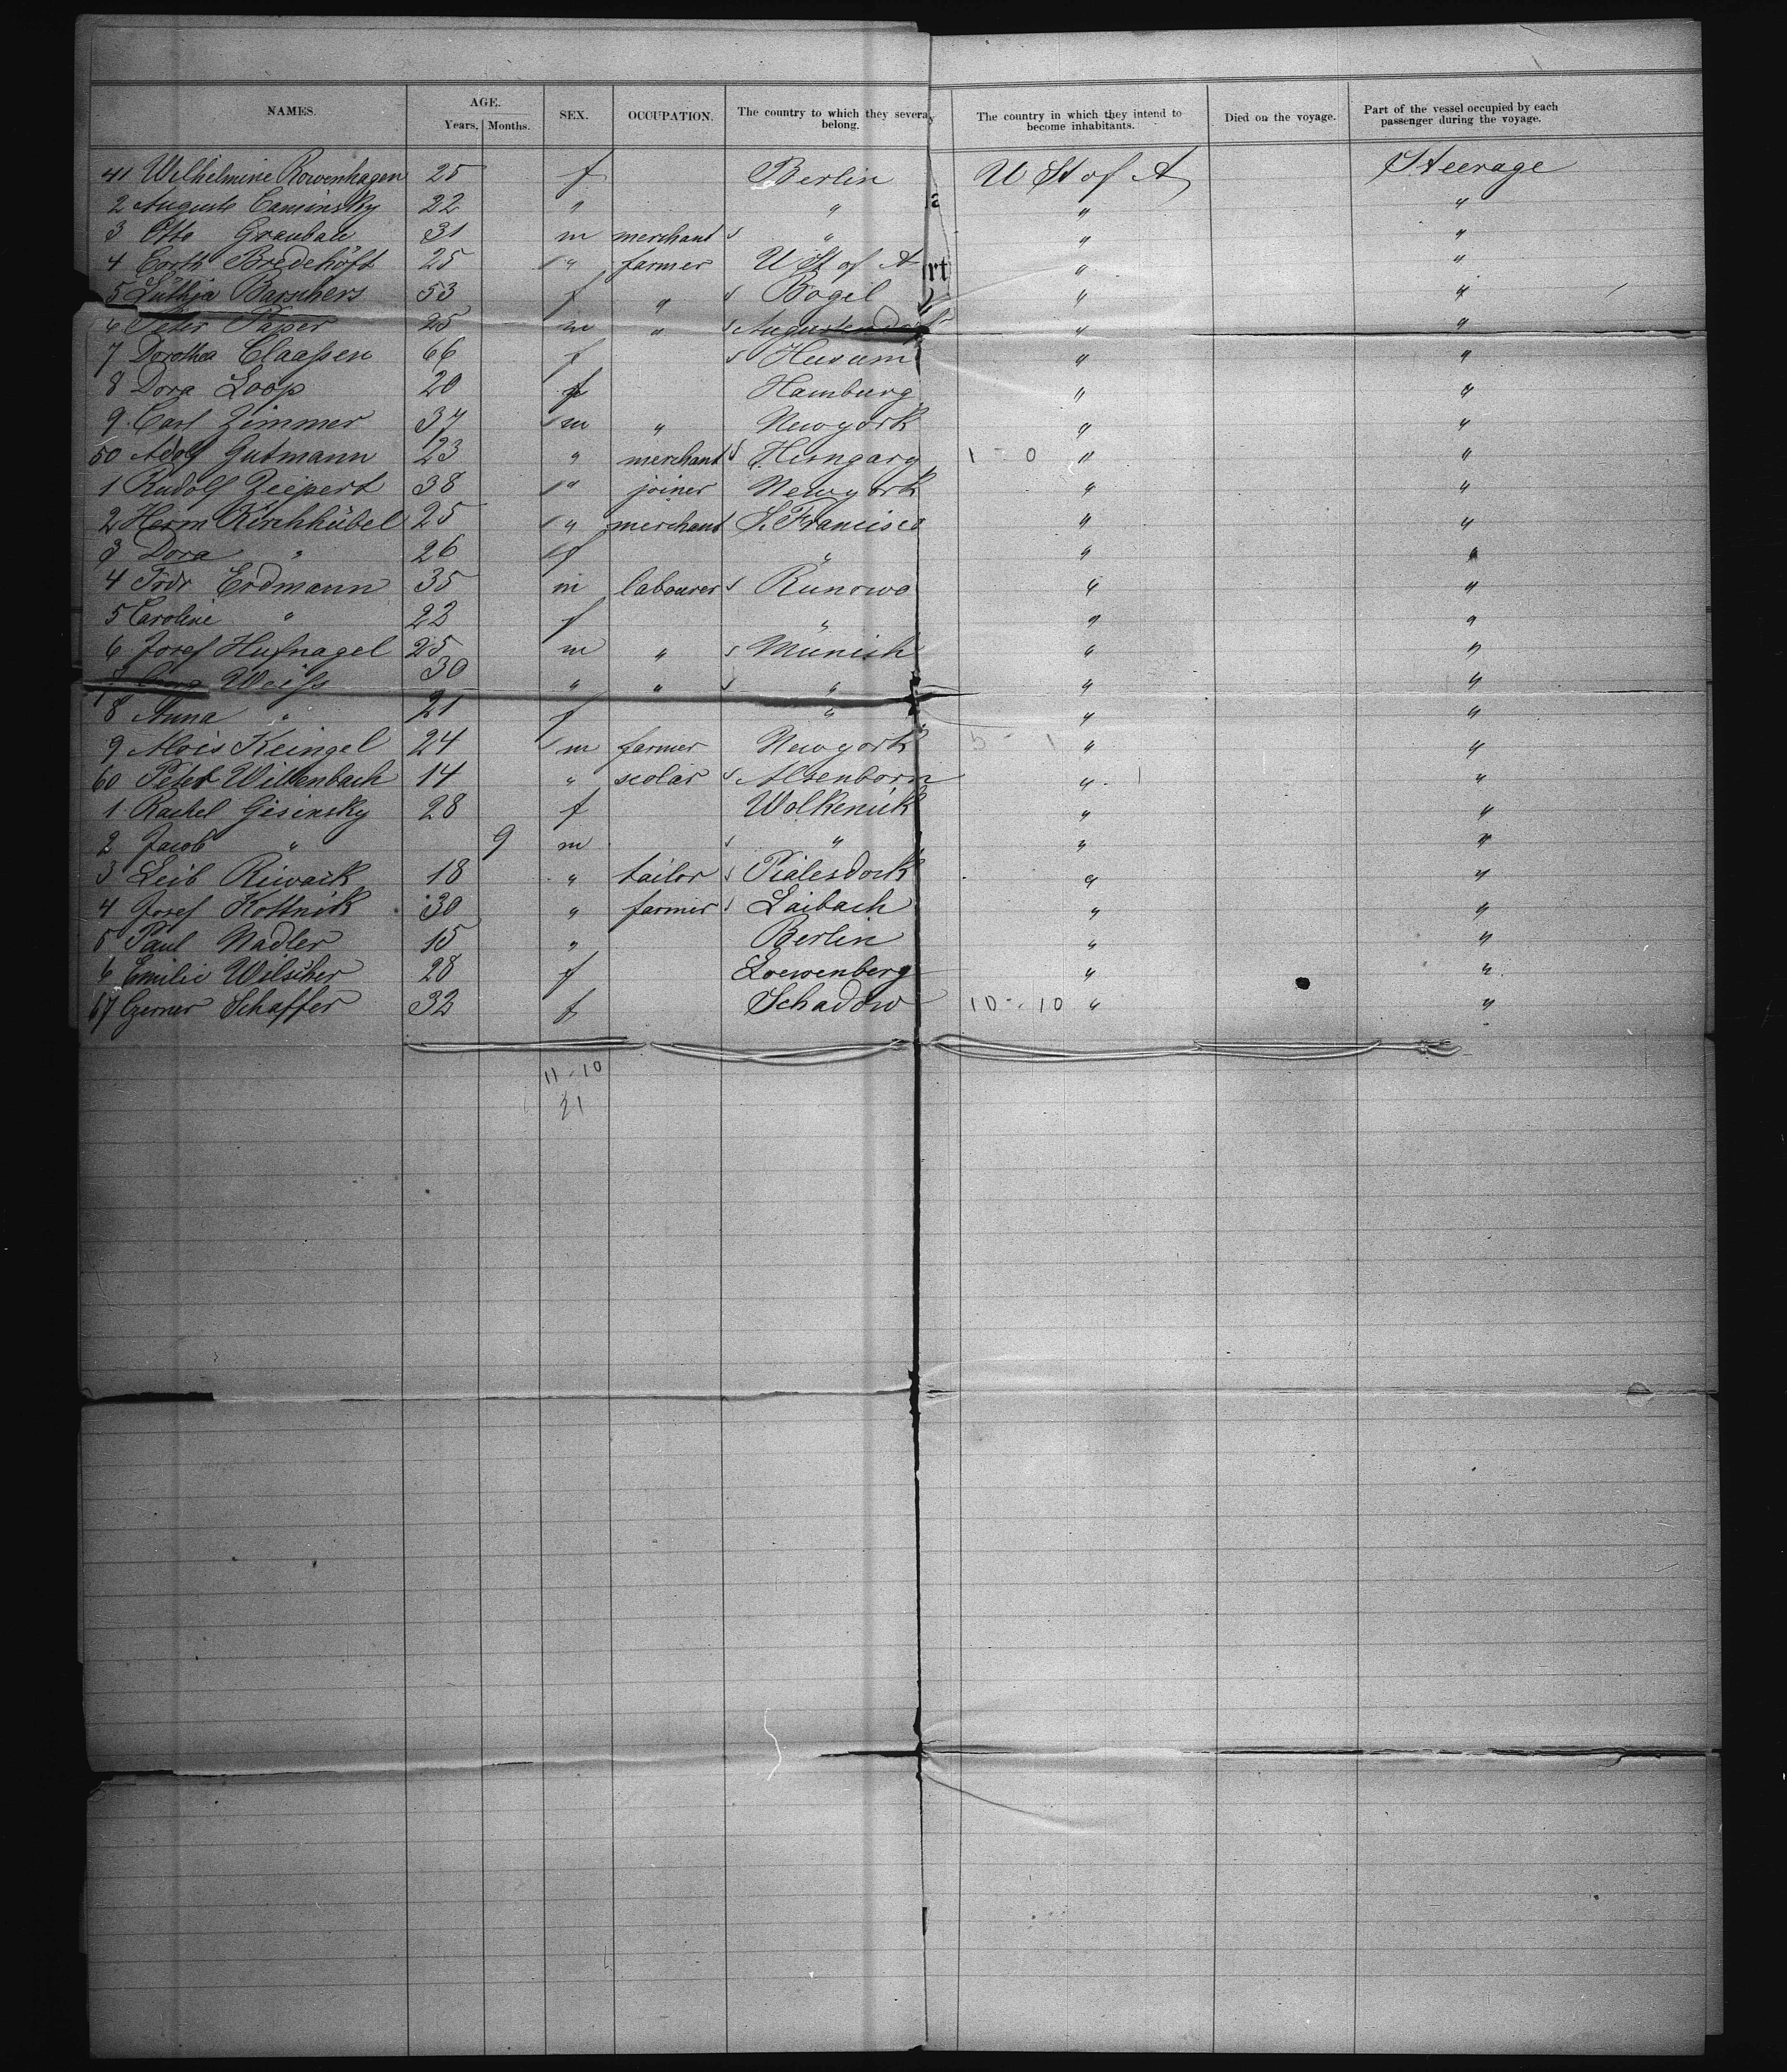 NAMES. AGE. Years. Months. SEX. OCCUPATION. The country to which they severaly belong. The country in which they intend to become inhabitants. Died on the voyage. Part of the vessel occupied by each passenger during the voyage.
41 Wilhelmine Rowenhagen 25 f Berlin U St of A Steerage
2 Auguste Caminsky 22 " " " "
3 Otto Graubau 31 m merchant s " " "
4 Corth Bredehöft 25 " farmer U St of A " "
5 Lüthja Burschers 53 f " s Bogel " "
6 Peter Paper 25 m " s Augustendorf " "
7 Dorothea Claaßen 66 f s Husum " "
8 Dora Loop 20 f Hamburg " "
9 Carl Zimmer 37 m " Newyork " "
50 Adolf Gutmann 23 " merchant s Hungary 1 - 0 " "
1 Rudolf Ziepert 38 " joiner Newyork " "
2 Herm Kirchhübel 25 " merchant S. Francisco " "
3 Dora " 26 f " " "
4 Frdr Erdmann 35 m labourer s Runowo " "
5 Caroline " 22 f " " "
6 Josef Hufnagel 25 m " s Munich " "
7 Weiss 30 " " s " " "
8 Anna " 21 f " " "
9 Alois Keingel 24 m farmer Newyork 5 - 1 " "
60 Peter Willenbach 14 " scolar s Alsenborn " "
1 Rachel Gisinsky 28 f Wolkenick " "
2 Jacob " 9 m s " " "
3 Leib Riwack 18 " tailor s Pialesdork " "
4 Josef Kottnik 30 " farmer s Laibach " "
5 Paul Nadler 15 " Berlin " "
6 Emilie Wilscher 28 f Loewenberg " "
67 Czerner Schaffer 32 f Schadow 10 - 10 " "
11 - 10
21